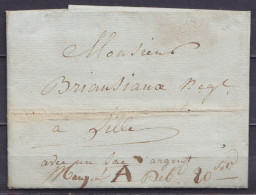 Monsieur
Briansiaux Negt
à Lille
avec un sac d'argent
A 20